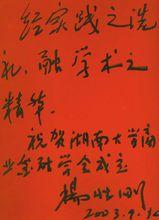 经实践之洗
礼、融学术之
精华。
祝贺湖南大学商
业金融学会成立
杨
2003.9.12